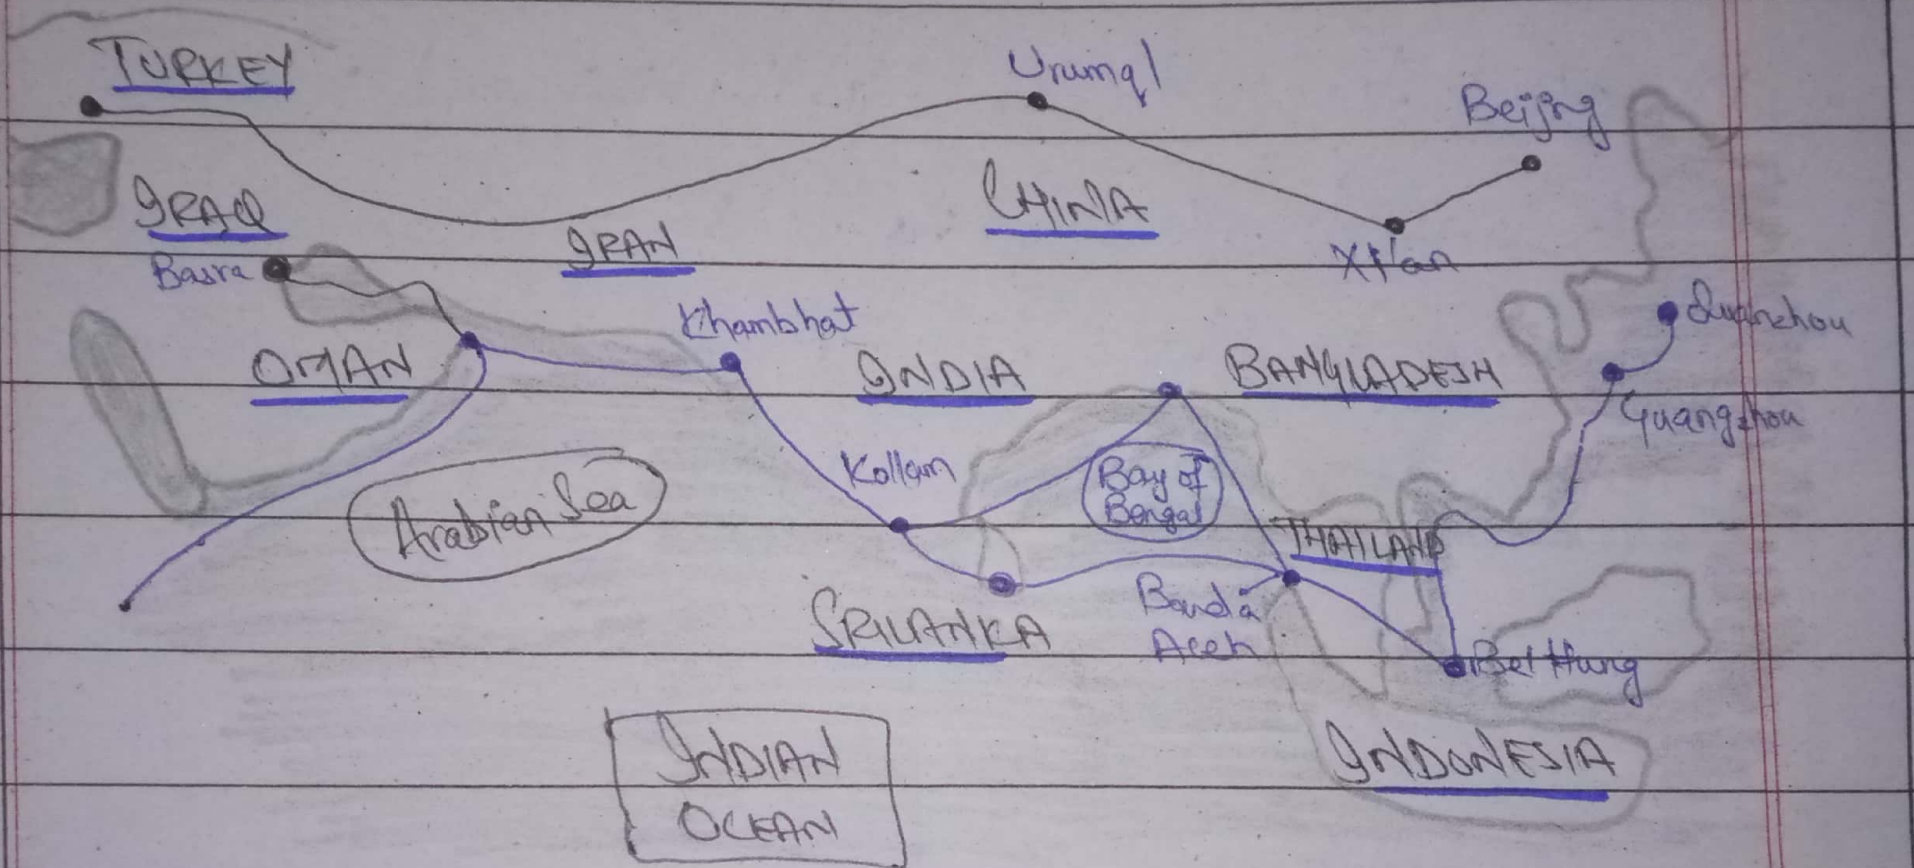 TURKEY
Urumqi
Beijing
IRAQ
CHINA
IRAN
Xi'an
Basra
Khambhat
Quanzhou
OMAN
INDIA
BANGLADESH
Guangzhou
Kollam
Bay of
Bengal
Arabian Sea
THAILAND
Banda
Aceh
SRILANKA
Beitung
INDIAN
OCEAN
INDONESIA